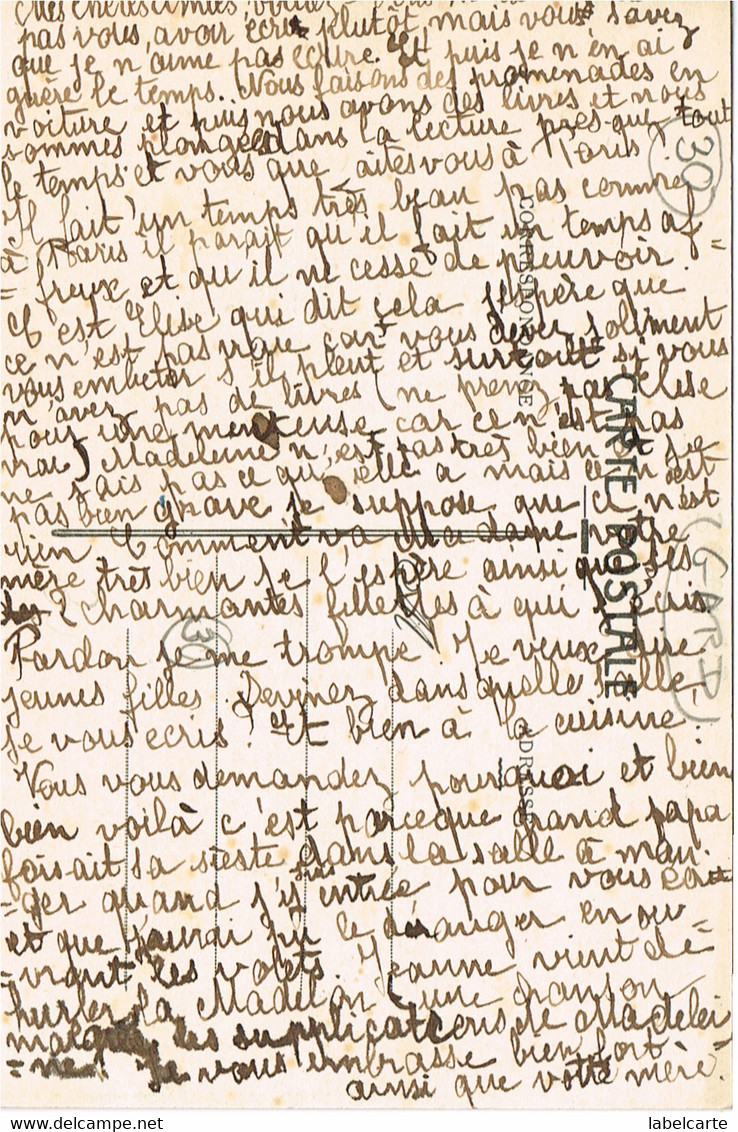 Mes chères amies
pas vous avoir écris plutôt, mais vous savez
que je n'aime pas écrire. Et puis je n'en ai
guère le temps. Nous faisons des promenades en
voiture et puis nous avons des livres et nous
sommes plongées dans la lecture presque tout
le temps et vous que aites vous à Paris.
Il fait un temps très beau pas comme
à Paris il parait qu'il fait un temps af=
=freux et qu'il ne cesse de pleuvoir.
C'est Elise qui dit cela j'espère que
ce n'est pas vrai car vous devez soliment
vous embeter s'il pleut et surtout si vous
n'avez pas de livres (ne prenez pas Elise
pour une menteuse car ce n'est pas
vrai) Madeleine n'est pas très bien et je
ne sais pas ce qu'elle a mais ce n'est
pas bien grave je suppose que ce n'est
rien Comment va Madame votre
mère très bien je l'espère ainsi que ses
2 charmantes fillettes à qui j'écris
Pardon je me trompe. Je veux dire
jeunes filles Devinez dans quelle salle
je vous ecris? et bien à la cuisine
Vous vous demandez pourquoi et bien
bien voilà c'est parceque grand papa
faisait sa sieste dans la salle à man=
=ger quand j'y suis entrée pour vous
et que j'aurai pu le déranger en ou=
=vrant les volets. Jeanne vient dé=
hurler la Madelon (une chanson
malgrée les supplications de Madelei
=ne. Je vous embrasse bien fort
ainsi que votre mère.
CARTE POSTALE
CORRESPONDANCE
ADRESSE
30
(GARD)
30
labelcarte